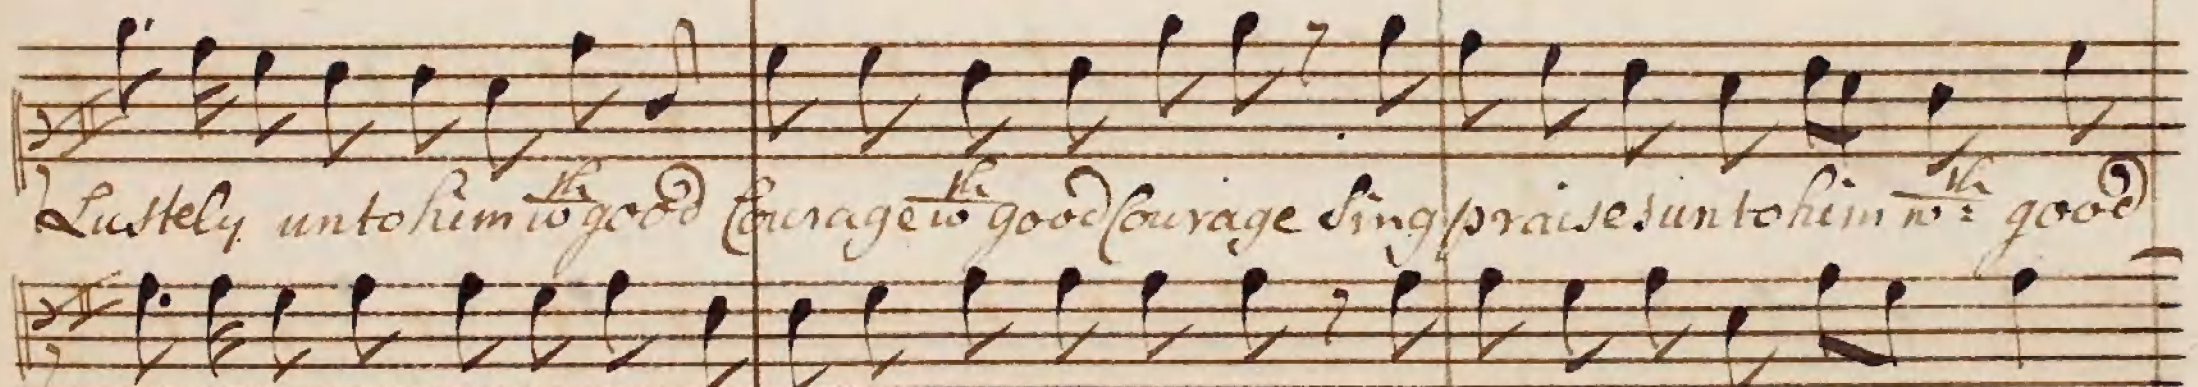 Lustely unto him wth good Courage wth good Courage Sing praises unto him wth good